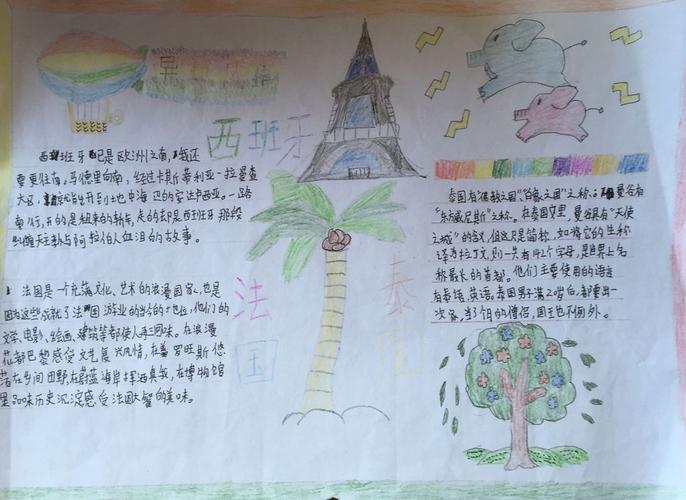 异
西班牙
西班牙已是欧洲之南,我还
要更往南。马德里向南,经过卡斯蒂利亚—拉曼查
大区,
南行,开的是租来的轿车,走的却是西班牙那段
天主教与阿拉伯人血泪的故事。
法国
法国是一个充满文化、艺术的浪漫国家,也是
因为这些成就了法国旅游业的
文学、电影、绘画、建筑等都使人手 回味。在浪漫
花都巴黎感受文艺复兴风情,在普罗旺斯悠
在乡间田野,在蔚蓝海岸 ,在博物馆
里品味历史沉淀感受法国大餐的美味。
泰国
泰国有“佛教之国”“白象之国”之称。曼谷有
“东方威尼斯”之称。在泰国文里,曼谷是有“天使
之城”的含义,但这只是简称,如将它的全称
译为拉丁文,则一共有142个字母,是世界上名
称最长的首都。他们主要使用的语言
有泰语,英语。泰国男子满20岁后,都要出一
次家,当3个月的僧侣,国王也不例外。